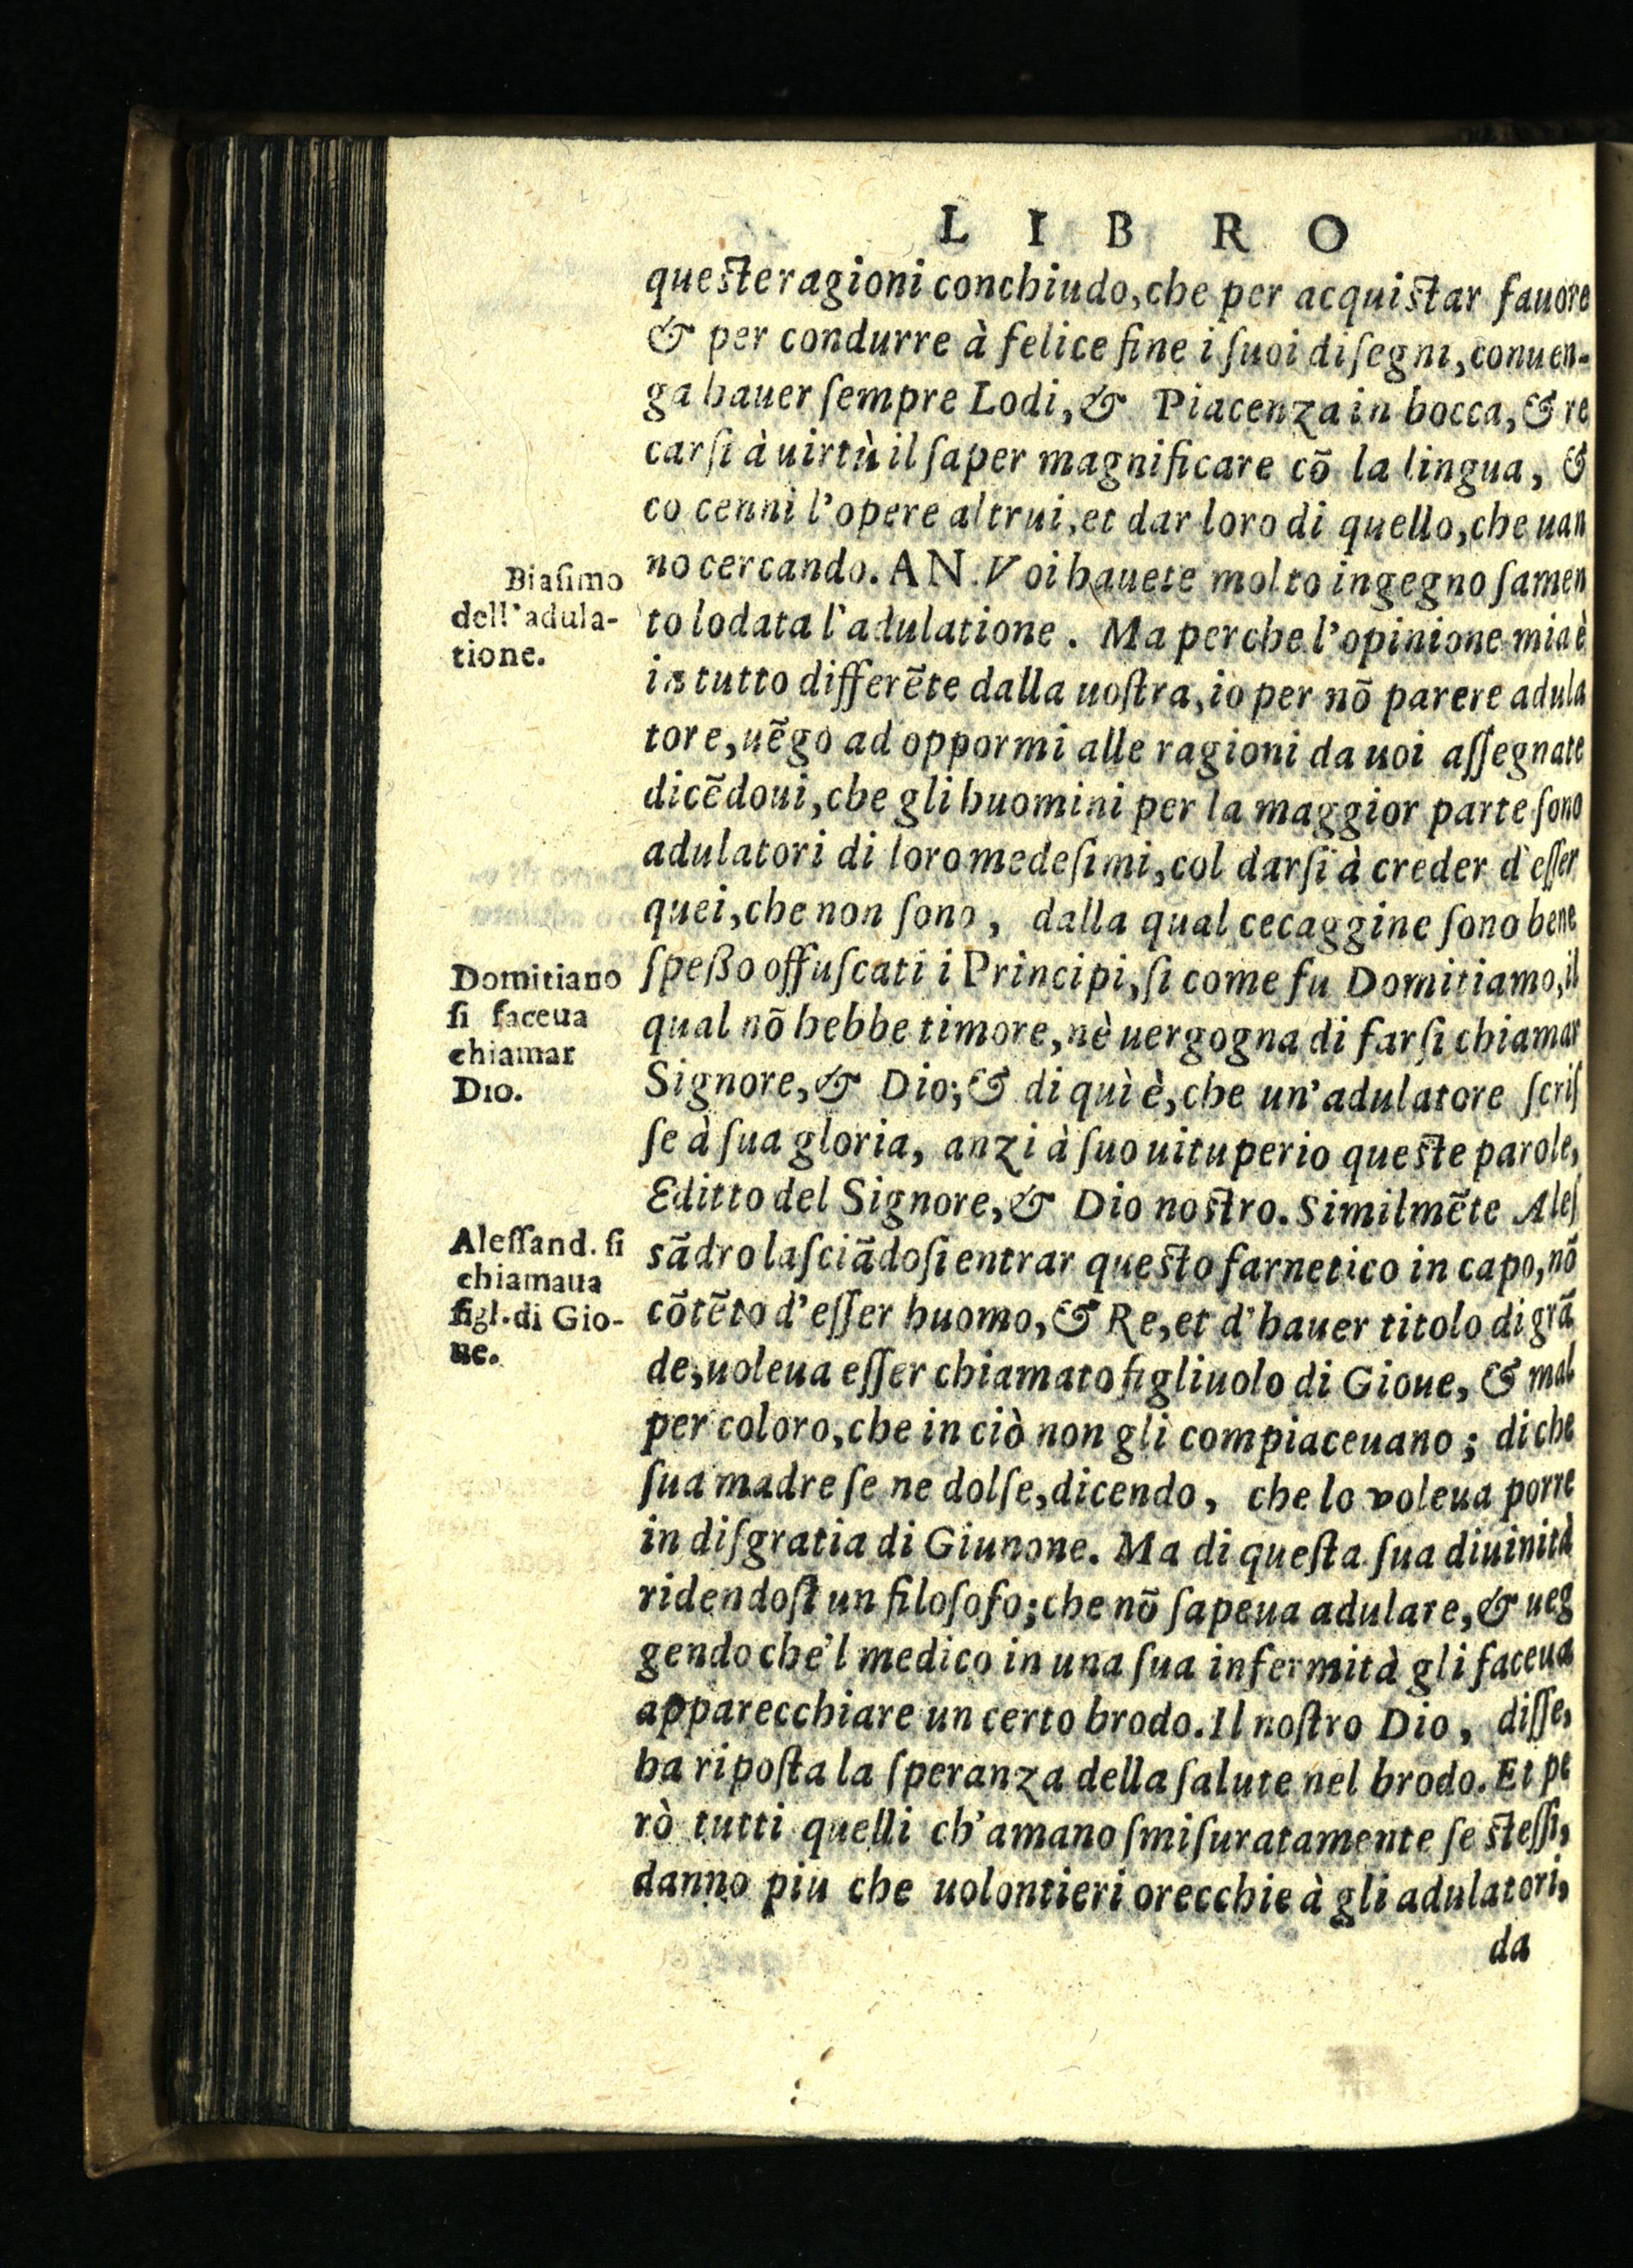 LIBRO
queste ragioni conchiudo, che per acquistar fauore
& per condurre à felice fine i ſuoi diſegni, conuen-
ga hauer ſempre Lodi, & Piacenza in bocca, & re
carſi à uirtù il ſaper magnificare cõ la lingua, &
co cenni l'opere altrui, et dar loro di quello, che uan
no cercando. AN. Voi hauete molto ingegnoſamen
to lodata l'adulatione. Ma perche l'opinione mia è
in tutto differẽte dalla uoſtra, io per nõ parere adula
tore, uẽgo ad oppormi alle ragioni da uoi aſſegnate
dicẽdoui, che gli huomini per la maggior parte ſono
adulatori di loro medeſimi, col darſi à creder d'eſſer
quei, che non ſono, dalla qual cecaggine ſono bene
ſpeßo offuſcati i Principi, ſi come fu Domitiamo, il
qual nõ hebbe timore, nè uergogna di farſi chiamar
Signore, & Dio; & di quì è, che un'adulatore ſcriſ
ſe à ſua gloria, anzi à ſuo uituperio queste parole,
Editto del Signore, & Dio nostro. Similmẽte Aleſ
sãdro laſciãdoſi entrar questo farnetico in capo, nõ
cõtẽto d'eſſer huomo, & Re, et d'hauer titolo di grã
de, uoleua eſſer chiamato figliuolo di Gioue, & mal
per coloro, che in ciò non gli compiaceuano; di che
ſua madre ſe ne dolſe, dicendo, che lo voleua porre
in diſgratia di Giunone. Ma di queſta ſua diuinità
ridendoſi un filoſofo; che nõ ſapeua adulare, & ueg
gendo che'l medico in una ſua infermità gli faceua
apparecchiare un certo brodo. Il noſtro Dio, diſſe,
ha ripoſta la ſperanza della ſalute nel brodo. Et pe
rò tutti quelli ch'amano ſmiſuratamente ſe steſſi,
danno piu che uolontieri orecchie à gli adulatori,
da
Biaſimo
dell'adula-
tione.
Domitiano
ſi faceua
chiamar
Dio.
Aleſſand. ſi
chiamaua
figl. di Gio-
ue.